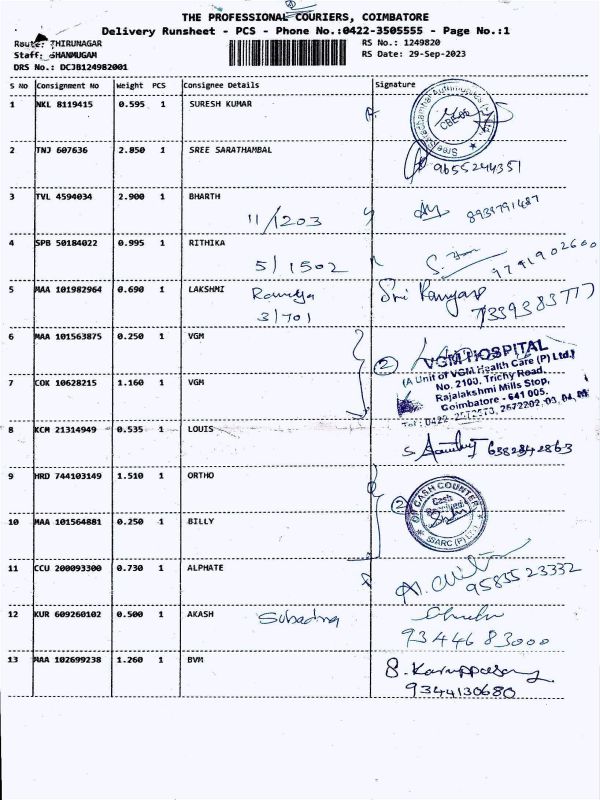 THE PROFESSIONAL COURIERS, COIMBATORE
Delivery Runsheet - PCS - Phone No.:0422-3505555 - Page No.:1
Route: THIRUNAGAR RS No.: 1249820
Staff: SHANMUGAM RS Date: 29-Sep-2023
DRS No.: DCJB124982001
S No Consignment No Weight PCS Consignee Details Signature
1 NKL 8119415 0.595 1 SURESH KUMAR
2 TNJ 607636 2.850 1 SREE SARATHAMBAL
9655244351
3 TVL 4594034 2.900 1 BHARTH
11/1203 8939791487
4 SPB 50184022 0.995 1 RITHIKA
5/1502 9791902600
5 MAA 101982964 0.690 1 LAKSHMI
Ramya
3/701 7339383777
6 MAA 101563875 0.250 1 VGM
2 VGM HOSPITAL
(A Unit of VGM Health Care (P) Ltd.)
No. 2100, Trichy Road,
7 COK 10628215 1.160 1 VGM
Rajalakshmi Mills Stop,
Coimbatore - 641 005.
8 KCM 21314949 0.535 1 LOUIS
6382842863
9 HRD 744103149 1.510 1 ORTHO
2 CASH COUNTER
Cash
10 MAA 101564881 0.250 1 BILLY
11 CCU 200093300 0.730 1 ALPHATE
9585523332
12 KUR 609260102 0.500 1 AKASH
9344683000
13 MAA 102699238 1.260 1 BVM
9344130680